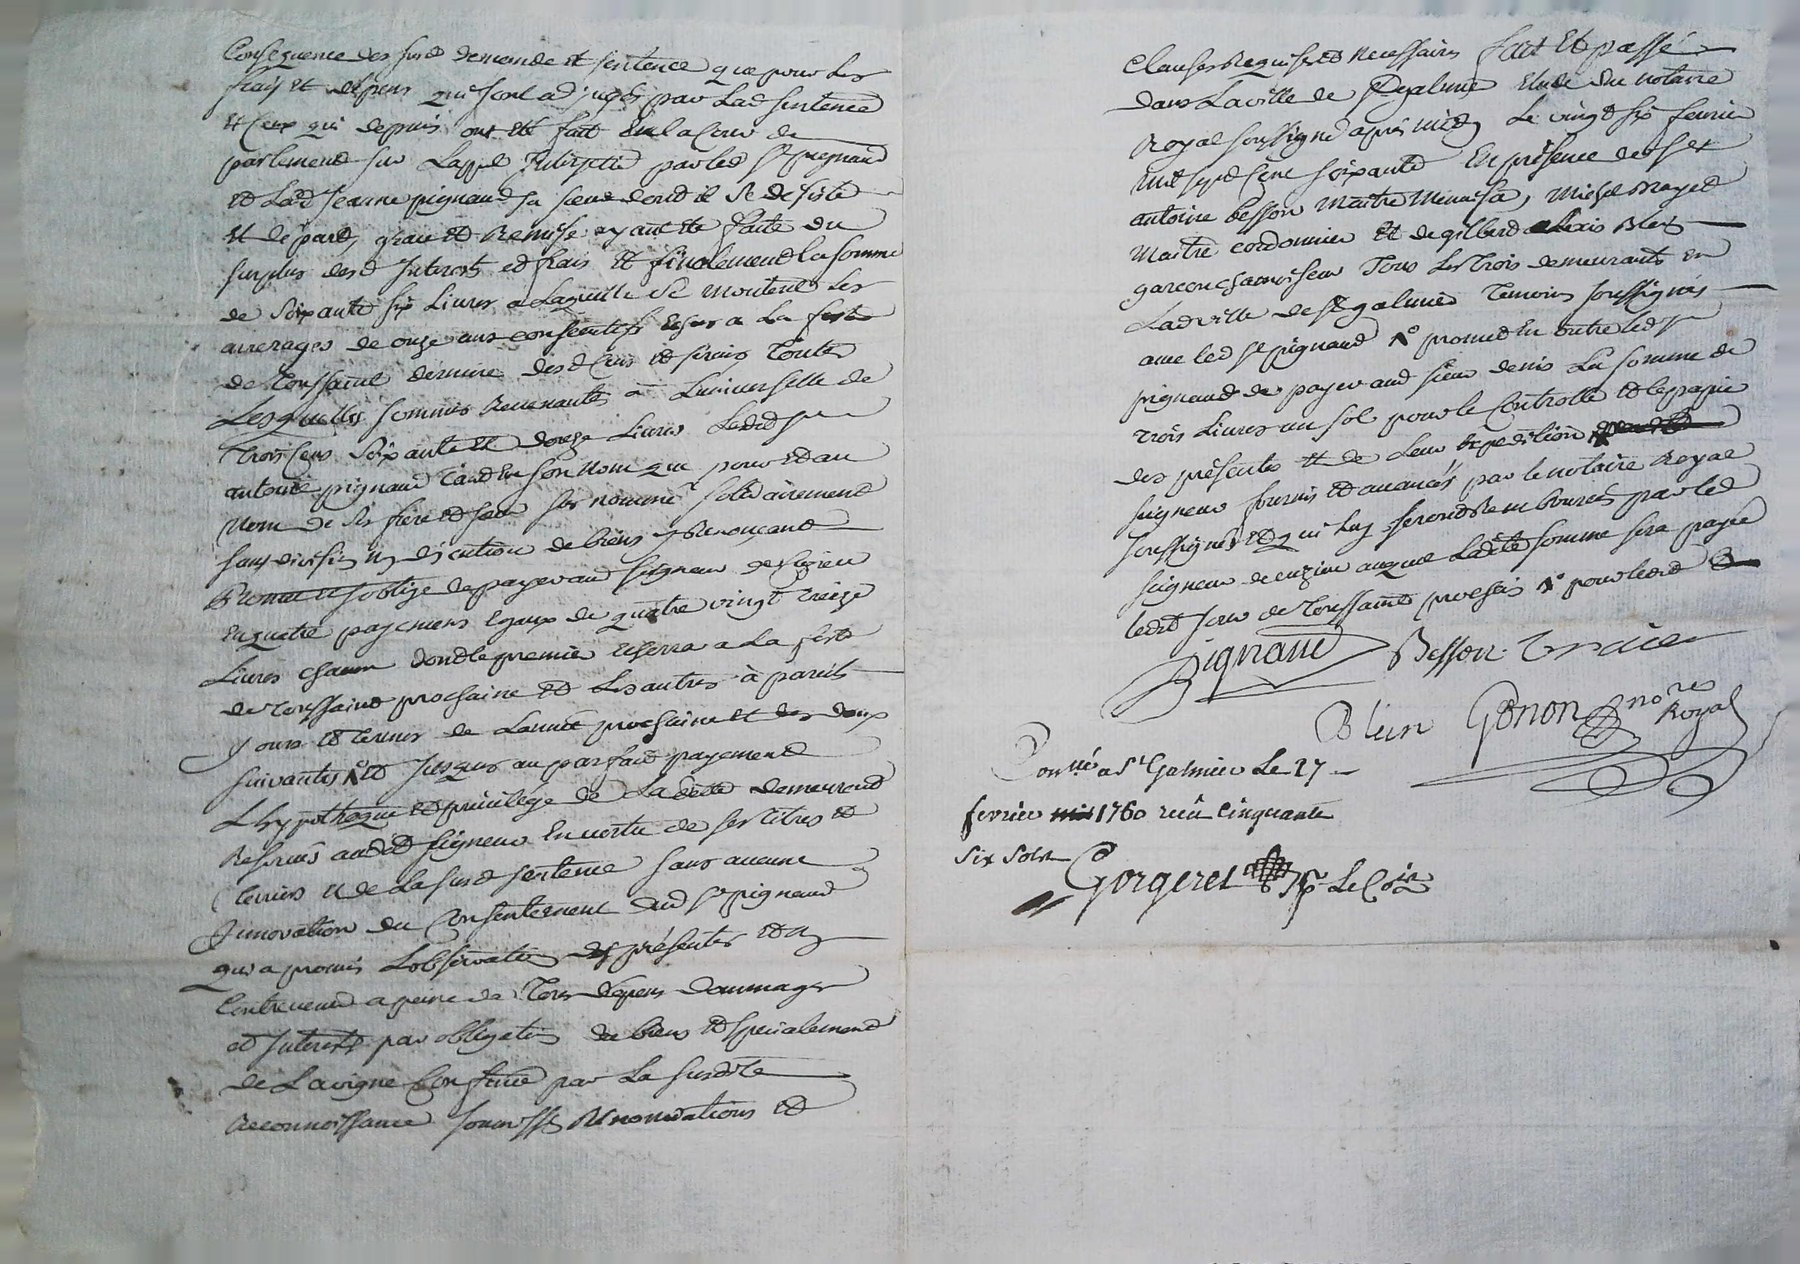 Consequence des susd demande et sentence que pour les
frais et depens qui sont adjugés par lad sentence
et ceux qui depuis ont été fait en la Cour de
parlement sur lappel interjetté par led sr pignaud
et lad jeanne pignaud sa soeur dont il se desiste
et depard, grace et remise ayant été faite du
surplus desd interests et frais et finalement la somme
de soixante six Livres a laquelle se montent les
arrerages de onze ans consecutifs echus a la feste
de Toussaint derniere desd Cens et servis Toutes
Lesquelles sommes revenantes à luniverselle de
Trois Cens soixante et douze Livres Ledit sr
antoine pignaud Tand en son nom que pour et au
nom de ses frere et soeur sus nommé solidairement
sans division ny discution de biens y renonçant
Promet et soblige de payer aud seigneur de
en quatre payemens egaux de quatre vingt treize
Livres chacun dont le premier echerra a la feste
de Toussaint prochaine et les autres à pareils
jours et termes de Lannée prochaine et des deux
suivantes et jusques au parfait payement
Lhypotheque et privilege de la dette demeurant
Reservés audit seigneur en vertu de ses titres et
terriers et de la susd sentence sans aucune
innovation du Consentement dud sr pignaud
qui a promis Lobservation des présentes et ny
Contrevenir a peine de Tous depens dommages
et interests par obligation de biens et specialement
de la vigne Confinée par la susdite
reconnoissance soumiss renonciations et
Clauses Requises et necessaires fait et passé
dans La ville de st galmier etude du notaire
Royal soussigné après midy le vingt six fevrier
mil sept cens soixante en présence de srs
antoine besson maitre menuisier, michel
maitre cordonnier et de gilbert alexis Blein
garcon chamoiseur Tous Les Trois demeurants en
Lad ville de st galmier temoins soussignés
avec led sr pignaud promet en outre led sr
pignaud de payer aud sieur La somme de
trois Livres un sol pour le Controlle et le papier
des présentes et de leur expedition
seigneur fournis et avancés par le notaire Royal
soussigné et qui luy seront remboursés par led
seigneur de auquel Ladite somme sera payée
ledit jour de Toussaint prochain pour ledit
Pignaud Besson
Blein Gonon nore
Royal
Conllé a St Galmier Le 27
fevrier 1760 reçu Cinquante
Six Sols
Gorgeret